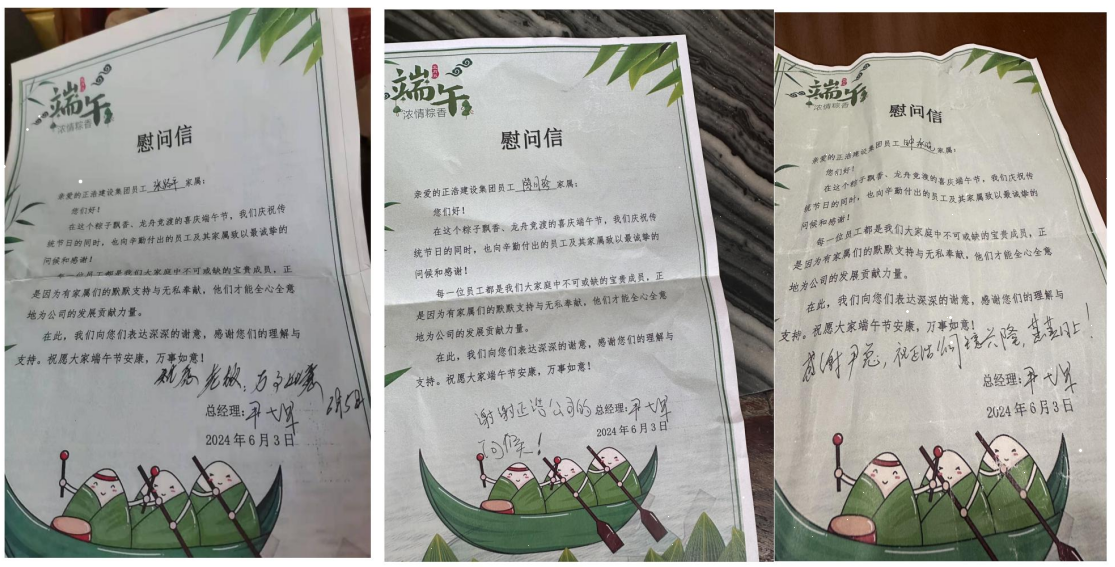 端午
浓情粽香
慰问信
亲爱的正浩建设集团员工 家属：
您们好！
在这个粽子飘香、龙舟竞渡的喜庆端午节，我们庆祝传
统节日的同时，也向辛勤付出的员工及其家属致以最诚挚的
问候和感谢！
每一位员工都是我们大家庭中不可或缺的宝贵成员，正
是因为有家属们的默默支持与无私奉献，他们才能全心全意
地为公司的发展贡献力量。
在此，我们向您们表达深深的谢意，感谢您们的理解与
支持。祝愿大家端午节安康，万事如意！
总经理：
2024年6月3日
端午
浓情粽香
慰问信
亲爱的正浩建设集团员工 家属：
您们好！
在这个粽子飘香、龙舟竞渡的喜庆端午节，我们庆祝传
统节日的同时，也向辛勤付出的员工及其家属致以最诚挚的
问候和感谢！
每一位员工都是我们大家庭中不可或缺的宝贵成员，正
是因为有家属们的默默支持与无私奉献，他们才能全心全意
地为公司的发展贡献力量。
在此，我们向您们表达深深的谢意，感谢您们的理解与
支持。祝愿大家端午节安康，万事如意！
谢谢正浩公司的
总经理：
问候！
2024年6月3日
端午
浓情粽香
慰问信
亲爱的正浩建设集团员工 家属：
您们好！
在这个粽子飘香、龙舟竞渡的喜庆端午节，我们庆祝传
统节日的同时，也向辛勤付出的员工及其家属致以最诚挚的
问候和感谢！
每一位员工都是我们大家庭中不可或缺的宝贵成员，正
是因为有家属们的默默支持与无私奉献，他们才能全心全意
地为公司的发展贡献力量。
在此，我们向您们表达深深的谢意，感谢您们的理解与
支持。祝愿大家端午节安康，万事如意！
感谢尹总，祝正浩公司 兴隆，蒸蒸日上！
总经理：
2024年6月3日